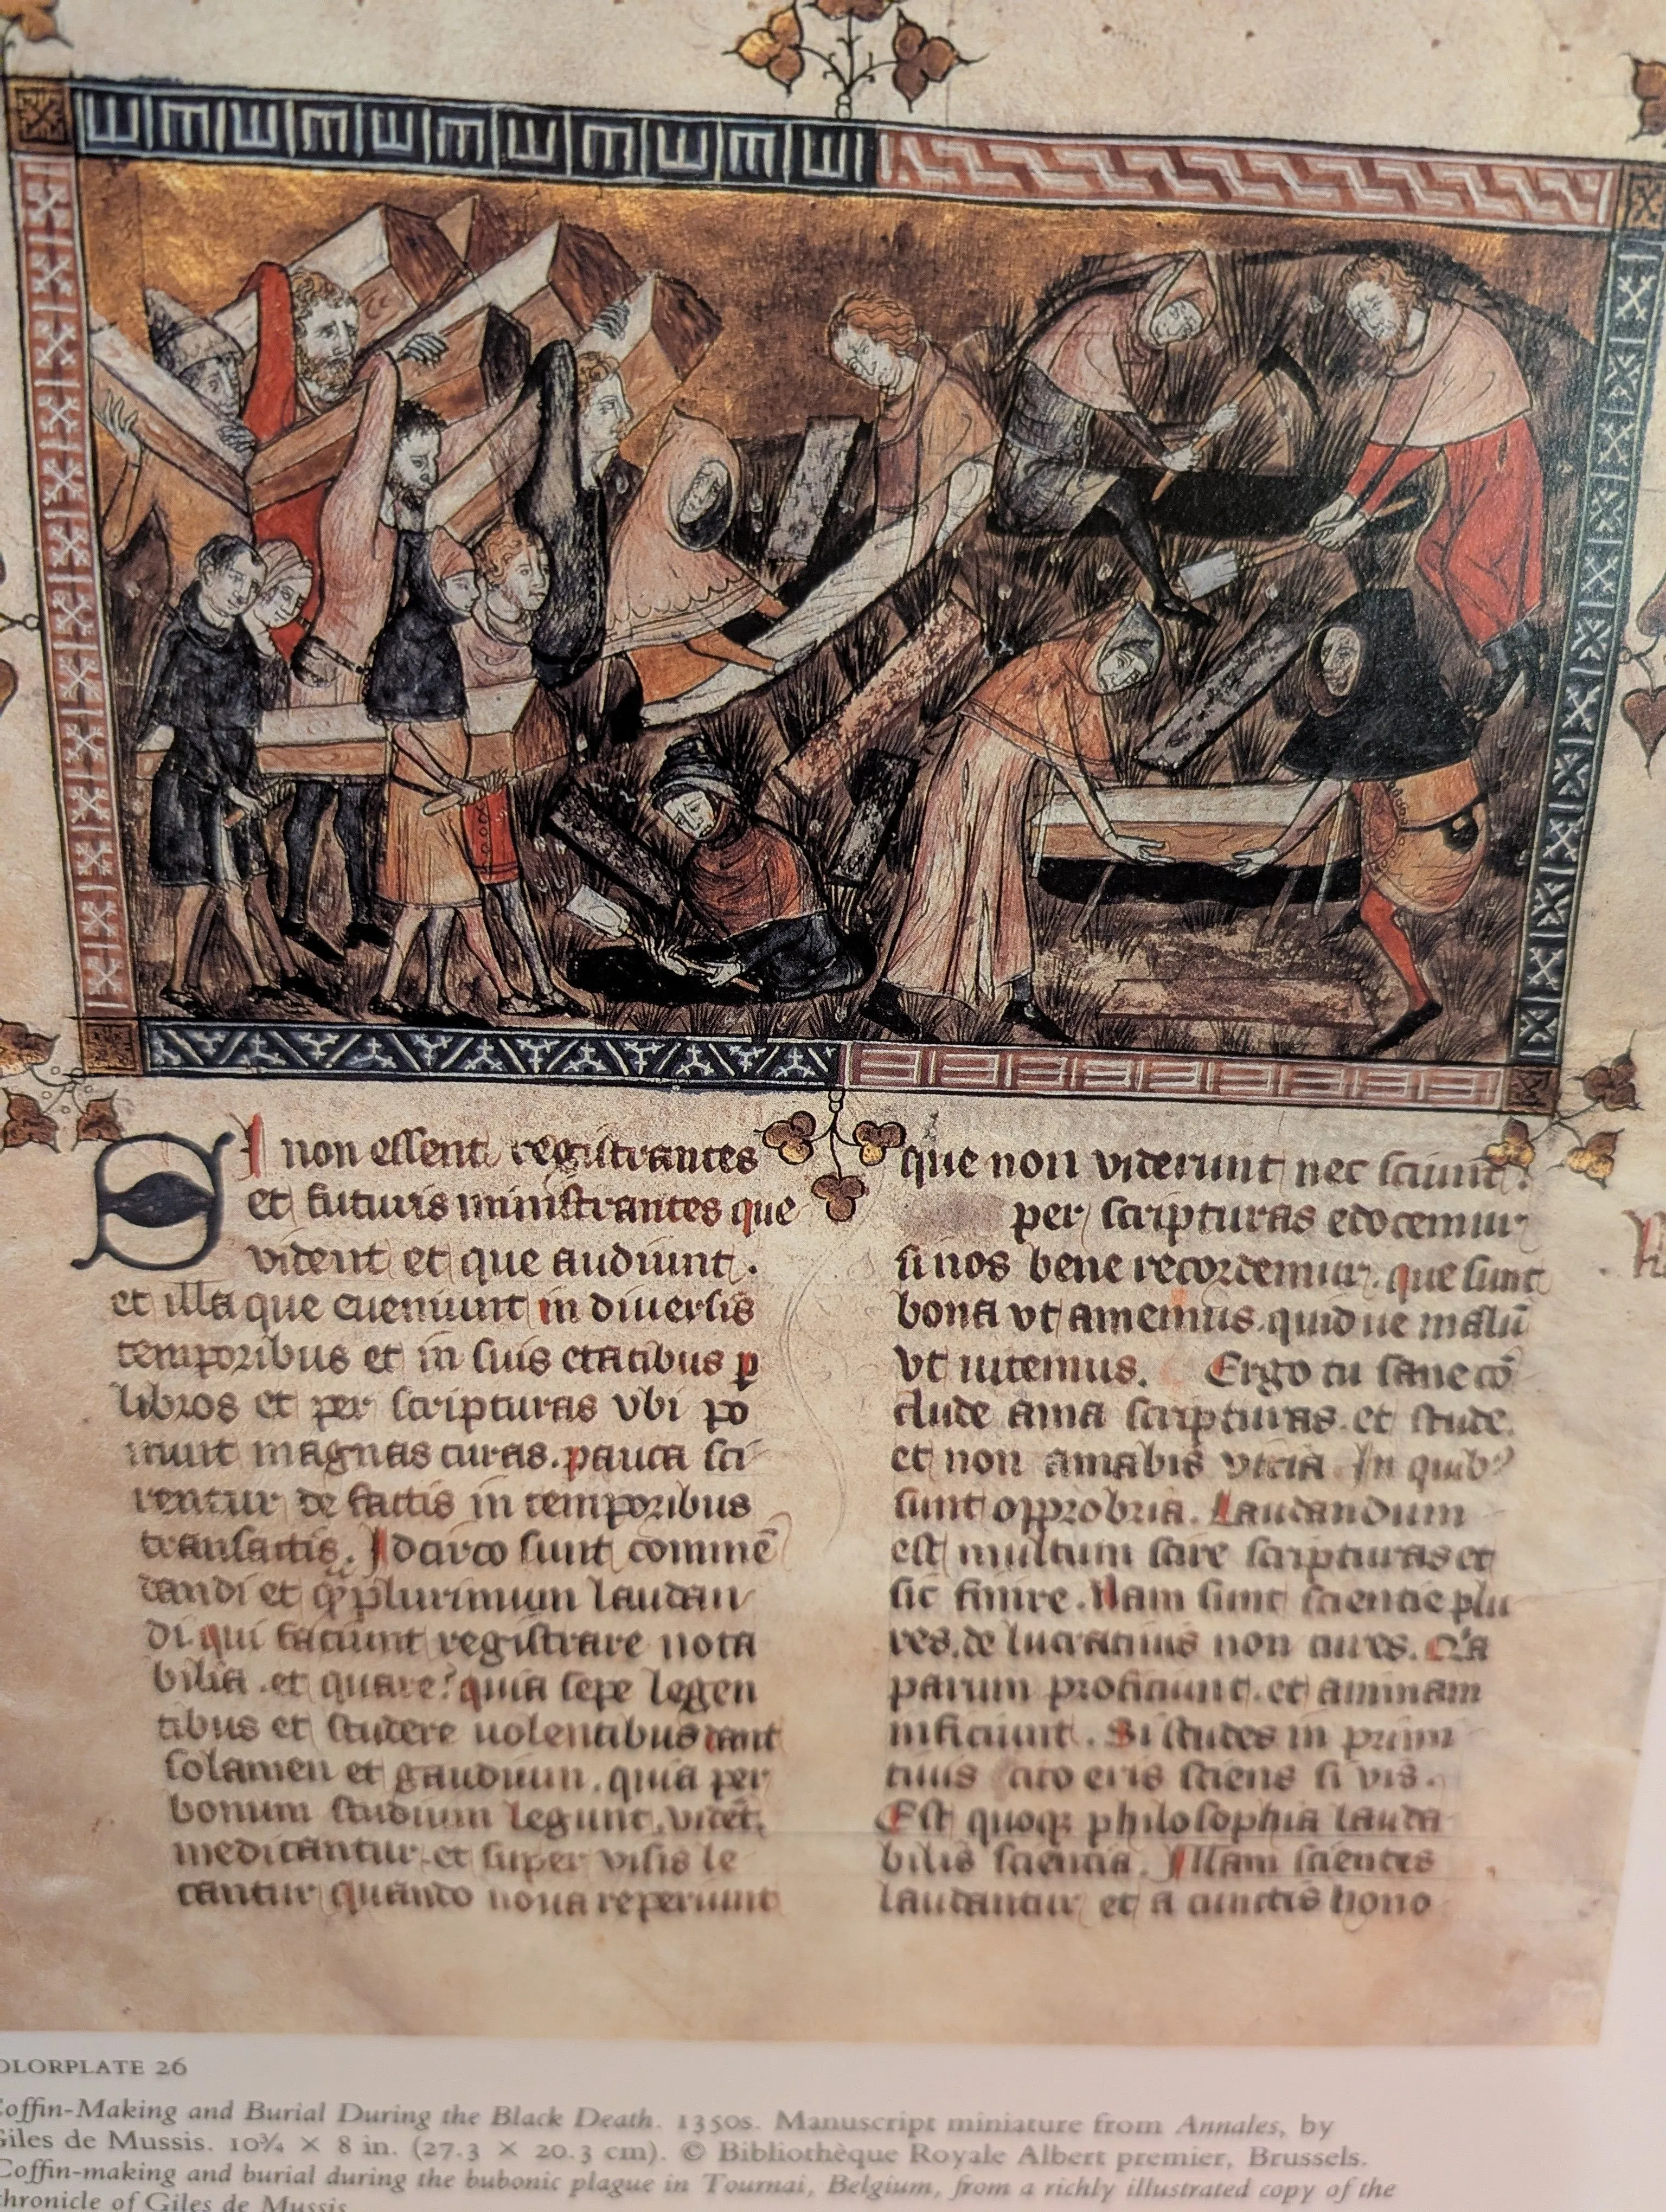 SI non essent registrantes
et futuris ministrantes que
vident et que audiunt.
et illa que eueniunt in diuersis
temporibus et in suis etatibus p
libros et per scripturas vbi po
nunt magnas curas. pauca sci
rentur de factis in temporibus
transactis. Idcirco sunt commē
dandi et plurimum laudan
di. qui faciunt registrare nota
bilia. et quare? quia sepe legen
tibus et studere uolentibus dant
solamen et gaudium. quia per
bonum studium legunt. vidēt.
meditantur. et super visis le
tantur quando noua reperiunt
que non viderunt nec sciunt.
per scripturas edocemur
si nos bene recordemur. que sunt
bona vt amemus. quid ue malū
vt uitemus. Ergo tu sane cō
clude ama scripturas. et stude.
et non amabis vicia In quib9
sunt opprobria. Laudandum
est multum scire scripturas et
sic finire. Nam sunt sciencie plu
res. de lucratiuis non cures. Qa
parum proficiunt. et animam
inficiunt. Si studes in primi
tiuis cito eris sciens si vis.
Est quoqz philosophia lauda
bilis sciencia. Illam scientes
laudantur et a cunctis hono
OLORPLATE 26
Coffin-Making and Burial During the Black Death. 1350s. Manuscript miniature from Annales, by
Giles de Mussis. 10¾ × 8 in. (27.3 × 20.3 cm). © Bibliothèque Royale Albert premier, Brussels.
Coffin-making and burial during the bubonic plague in Tournai, Belgium, from a richly illustrated copy of the
chronicle of Giles de Mussis